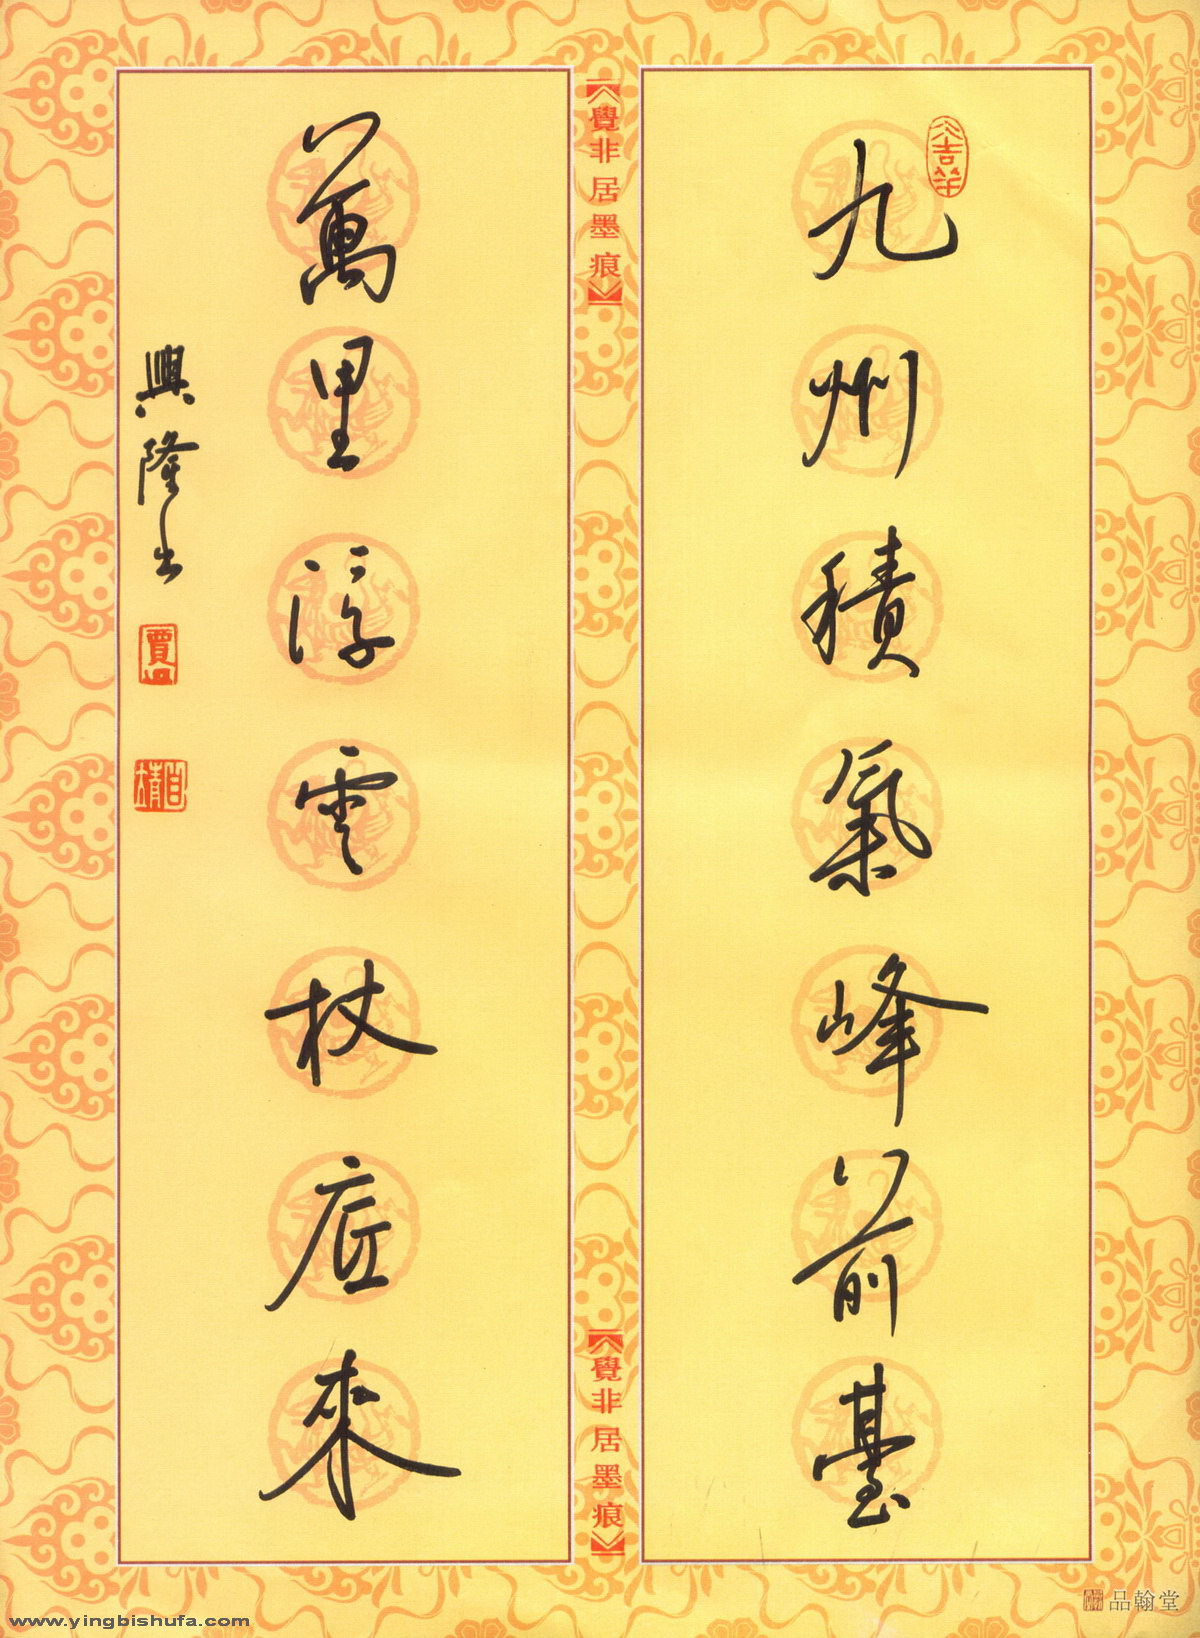 九州積氣峰前臺
萬里浮雲杖底來
興隆书
覺非居墨痕
覺非居墨痕
品翰堂
www.yingbishufa.com